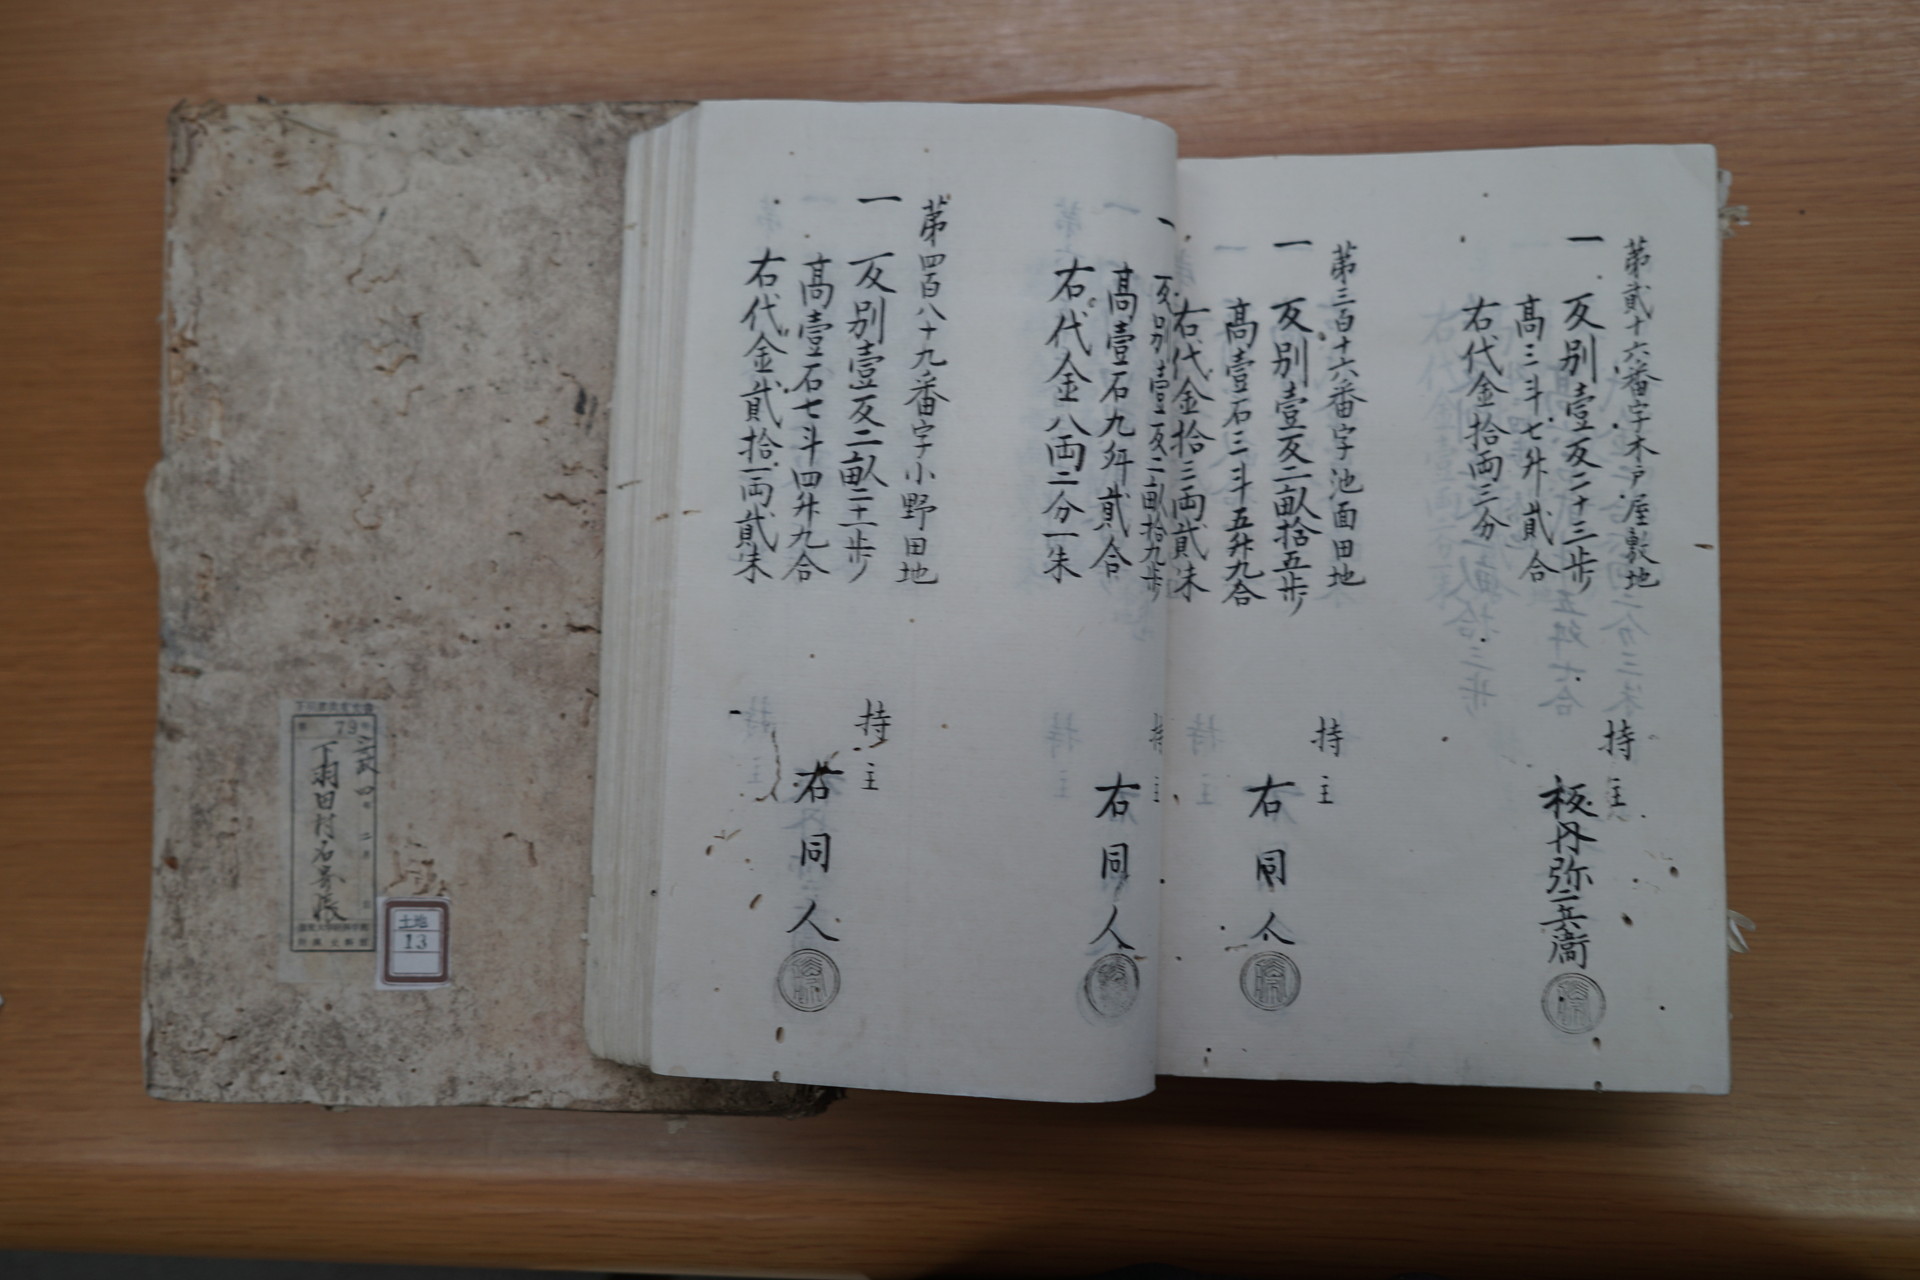 第貳十六番字木戸屋敷地
一 反別壹反二十三歩
高三斗七升貳合
右代金拾両三分
持主
板丹弥三兵衛
第三百十六番字池面田地
一 反別壹反二畝拾五歩
高壹石三斗五升九合
右代金拾三両貳朱
持主
右同人
一 反別壹反二畝拾九歩
高壹石九升貳合
右代金八両二分一朱
持主
右同人
第四百八十九番字小野田地
一 反別壹反二畝二十一歩
高壹石七斗四升九合
右代金貳拾一両貳朱
持主
右同人
79
下羽田村名寄帳
土地
13